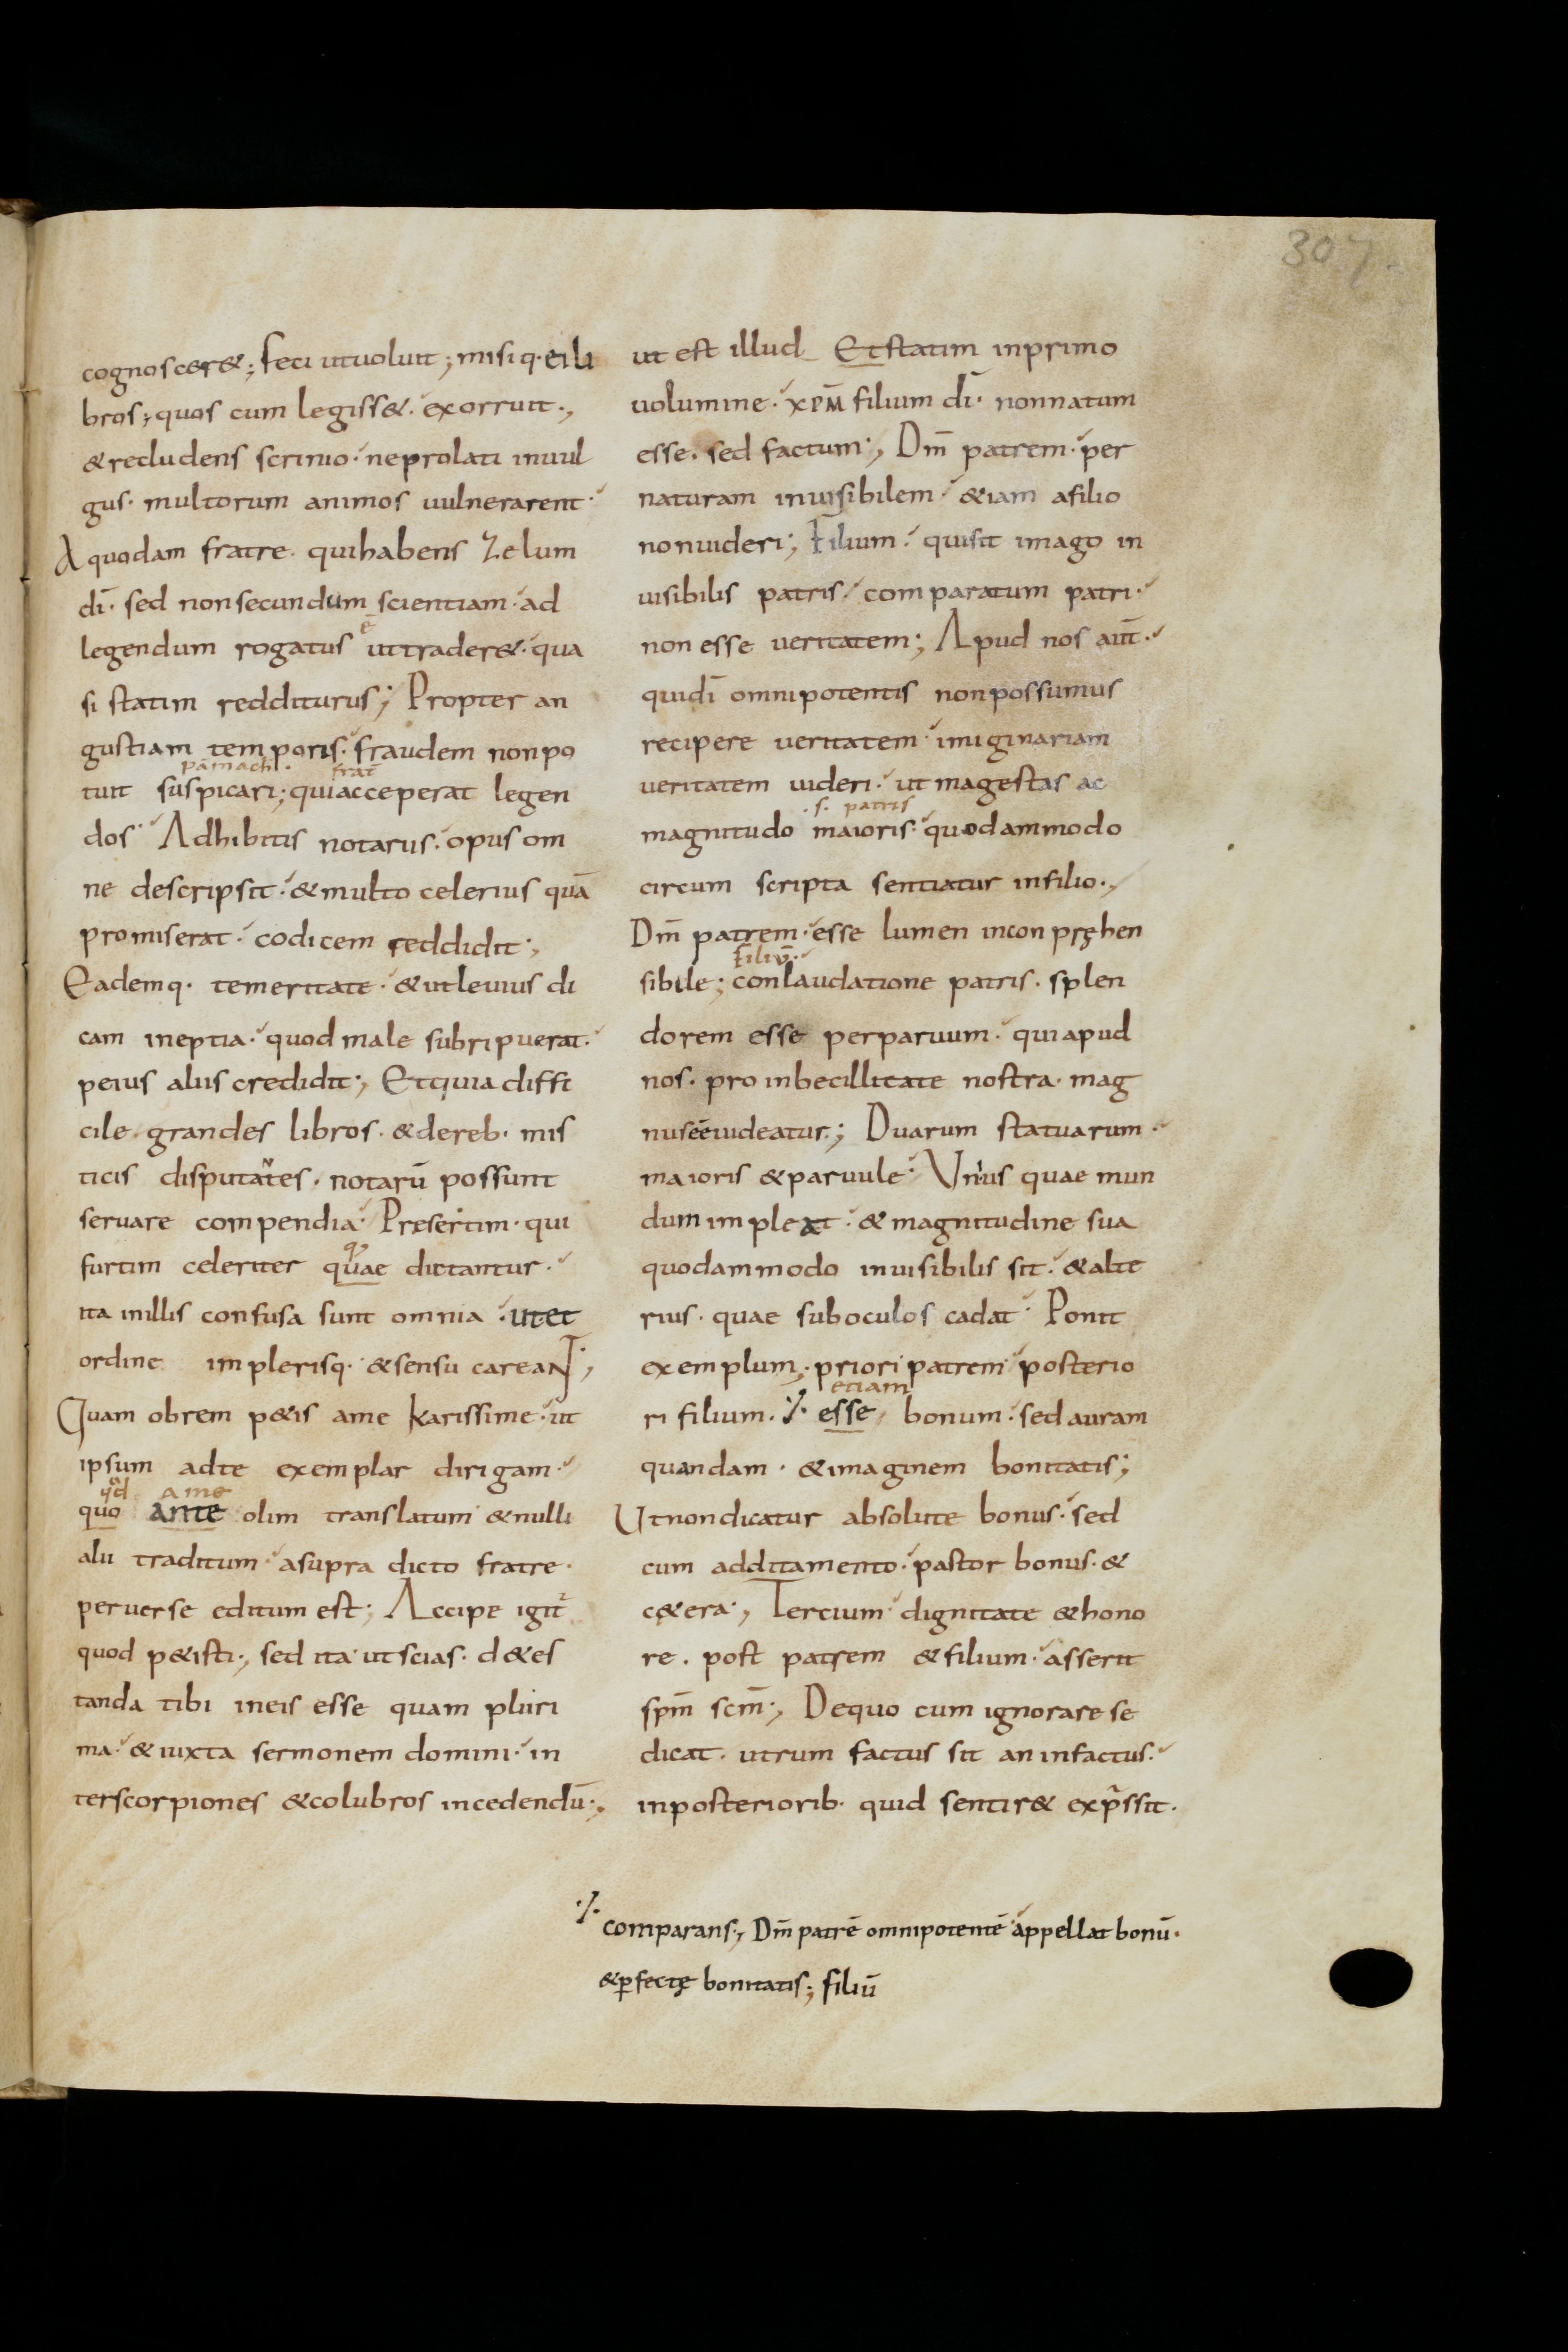 307.
cognoscer&; feci utuoluit; misiq·eili
bros; quos cum legiss&· exorruit·,
&recludens scrinio· neprolati inuul
gus· multorum animos uulnerarent·
A quodam fratre· quihabens zelum
dī· sed nonsecundum scientiam· ad
ē
legendum rogatus uttrader&· qua
si statim redditurus; Propter an
gustiam temporis· fraudem nonpo
pāmach· frat̄
tuit suspicari; quiacceperat legen
dos· Adhibitis notariis· opus om
ne descripsit· &multo celerius quā
promiserat· codicem reddidit·,
Eademq· temeritate· &utleuius di
cam ineptia· quod male subripuerat·
peius aliis credidit·, Etquia diffi
cile· grandes libros· &dereb· mis
n
ticis disputates· notarū possunt
seruare compendia· Presertim· qui
furtim celeriter quae dictantur·
ita inillis confusa sunt omnia· utet
ordine implerisq· &sensu careaNT·,
Quam obrem p&is ame karissime· ut
ipsum adte exemplar dirigam·
qd ame
quo ante olim translatum· &nulli
alii traditum· asupra dicto fratre·
peruerse editum est; Accipe igit᷑
quod p&isti·, sed ita ut scias· d&es
tanda tibi ineis esse quam pluri
ma· &iuxta sermonem domini· in
terscorpiones &colubros incedendū·,
ut est illud Etstatim inprimo
uolumine· xp̄m filium dī· nonnatum
esse· sed factum·, Dm̄ patrem· per
naturam inuisibilem· &iam afilio
nonuideri; Filium· quisit imago in
uisibilis patris· comparatum patri·
non esse ueritatem; Apud nos aut̄·
quidī omnipotentis nonpossumus
recipere ueritatem· imiginariam
ueritatem uideri· ut magestas ac
·s· patris
magnitudo maioris· quodammodo
circum scripta sentiatur infilio·,
Dm̄ patrem· esse lumen inconpręhen
filiū·
sibile; conlaudatione patris· splen
dorem esse perparuum· quiapud
nos· pro inbecillitate nostra· mag
nuseēuideatur·; Duarum statuarum·
maioris &paruule· Unius quae mun
dum impleat· &magnitudine sua
quodammodo inuisibilis sit· &alte
rius· quae suboculos cadat· Ponit
exemplum·, priori patrem posterio
etiam
ri filium· ⁒ esse bonum· sed auram
quandam· &imaginem bonitatis;
Utnondicatur absolute bonus· sed
cum additamento· pastor bonus· &
c&era·, Tercium dignitate &hono
re· post patrem &filium· asserit
spm̄ scm̄·, Dequo cum ignorare se
dicat· utrum factus sit an infactus·
inposteriorib· quid sentir& exp̄ssit·
⁒ comparans·, Dm̄ patrē omnipotentē appellat bonū·
&ꝑfectę bonitatis; filiū